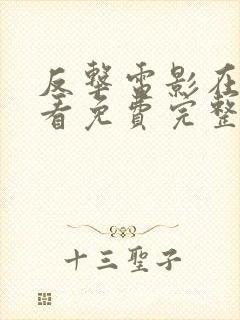 反擊雷影在
看免費完整
十三聖子